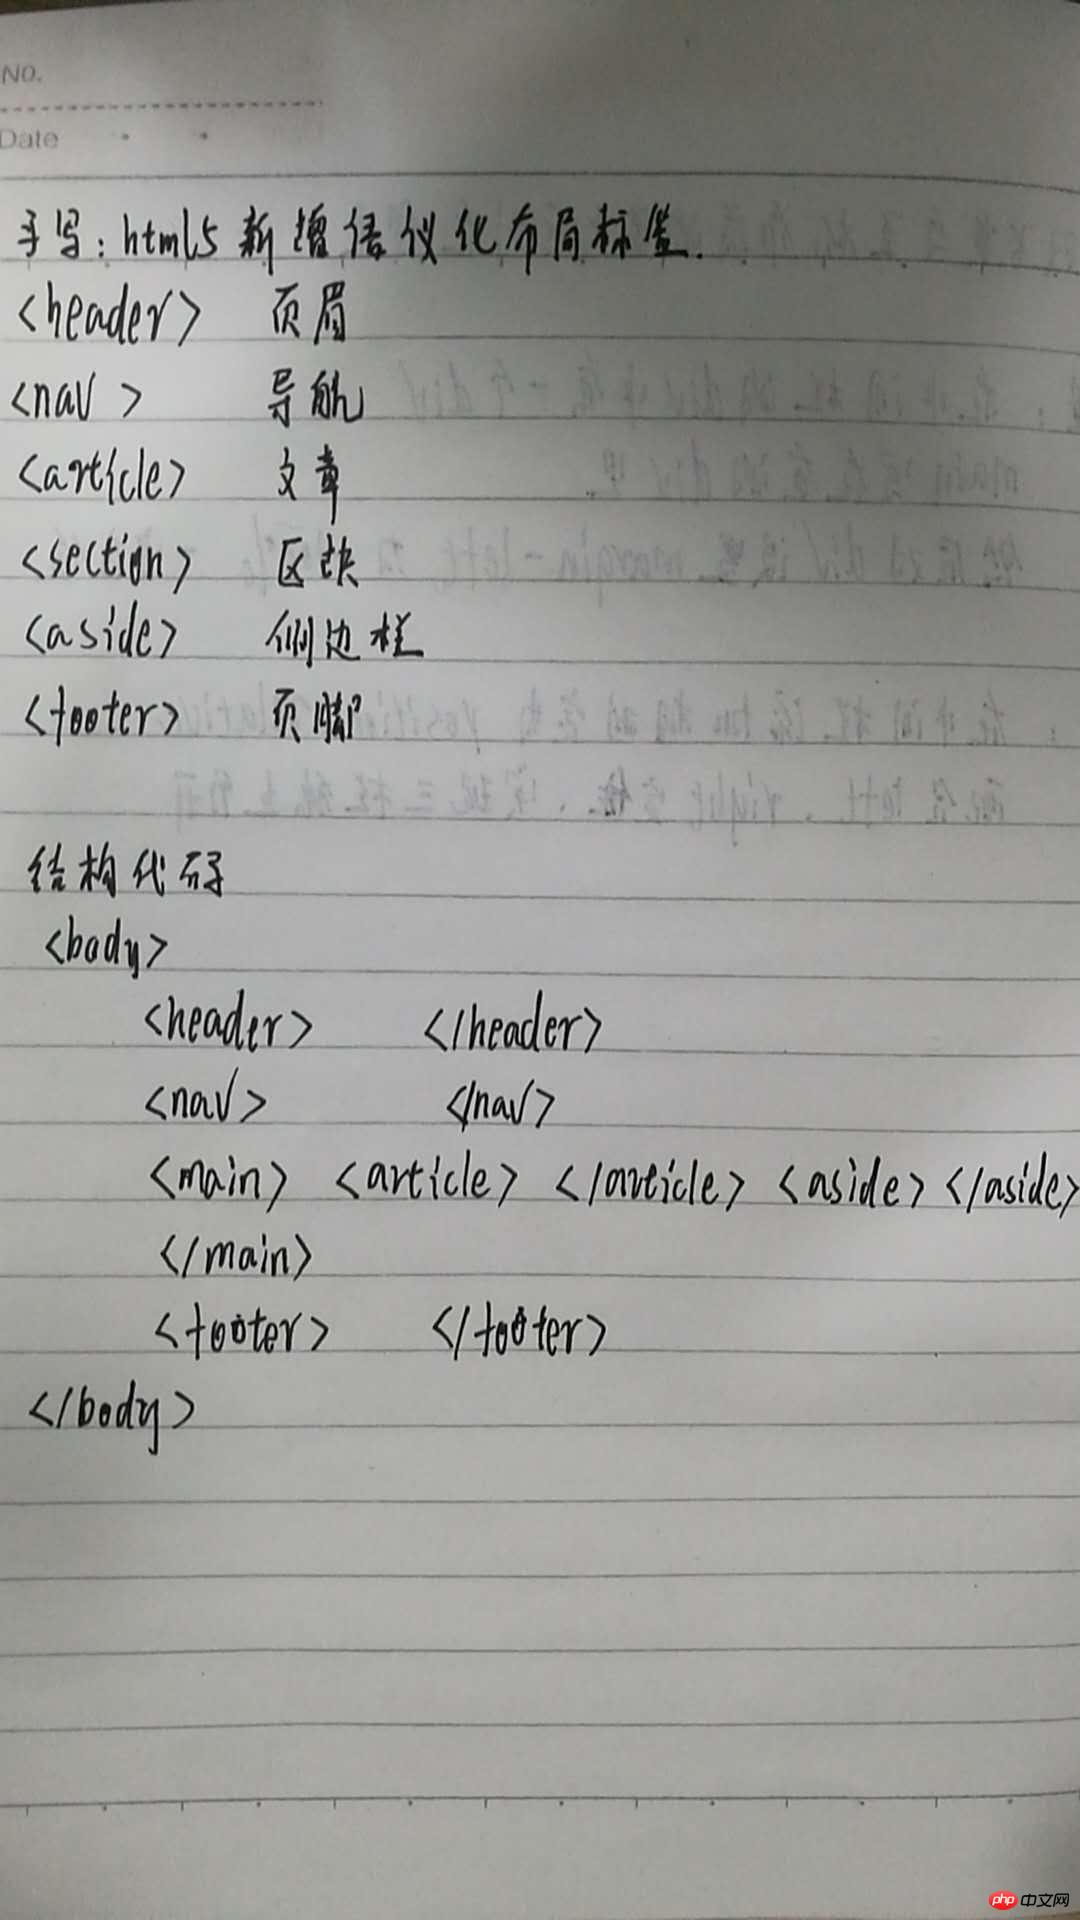 No.
Date
手写：html5新增语仪化布局标签.
<header> 页眉
<nav> 导航
<article> 文章
<section> 区块
<aside> 侧边栏
<footer> 页脚
结构代码
<body>
<header> </header>
<nav> </nav>
<main> <article> </article> <aside></aside>
</main>
<footer> </footer>
</body>
php 中文网